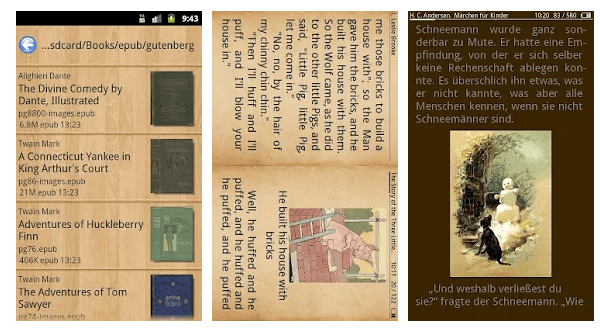 9:43
...sdcard/Books/epub/gutenberg
Alighieri Dante
The Divine Comedy by
Dante, Illustrated
pg8800-images.epub
6.8M epub 13:23
Twain Mark
A Connecticut Yankee in
King Arthur's Court
pg86-images.epub
21M epub 13:23
Twain Mark
Adventures of Huckleberry
Finn
pg76.epub
406K epub 13:23
Twain Mark
The Adventures of Tom
Sawyer
pg74-images.epub
L. Leslie Brooke
me those bricks to build a
house with"; so the Man
gave him the bricks, and he
built his house with them.
So the Wolf came, as he did
to the other little Pigs, and
said, "Little Pig, little Pig,
let me come in."
"No, no, by the hair of
my chinny chin chin."
"Then I'll huff and I'll
puff, and I'll blow your
house in."
The Story of the Three Little
10:11
20 / 122
He built his house with
bricks
Well, he huffed and he
puffed, and he huffed and
he puffed, and he puffed
H. C. Andersen. Märchen für Kinder
10:20 83 / 580
Schneemann wurde ganz son-
derbar zu Mute. Er hatte eine Em-
pfindung, von der er sich selber
keine Rechenschaft ablegen konn-
te. Es überschlich ihn etwas, was
er nicht kannte, was aber alle
Menschen kennen, wenn sie nicht
Schneemänner sind.
„Und weshalb verließest du
sie?“ fragte der Schneemann. „Wie